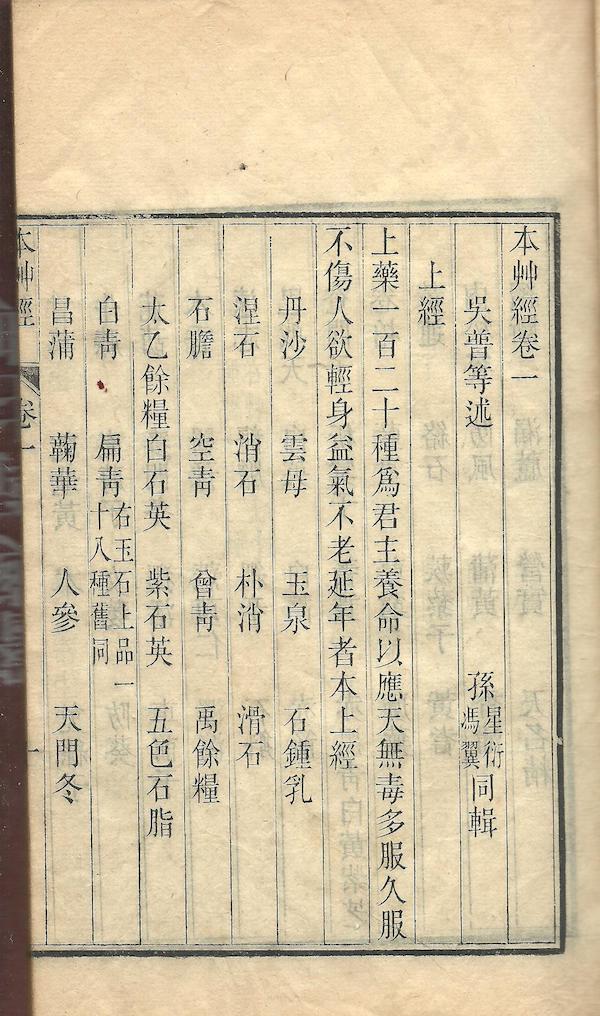 本艸經卷一
吳普等述 孫星衍馮翼同輯
上經
上藥一百二十種爲君主養命以應天無毒多服久服
不傷人欲輕身益氣不老延年者本上經
丹沙 雲母 玉泉 石鍾乳
涅石 消石 朴消 滑石
石膽 空青 曾青 禹餘糧
太乙餘糧 白石英 紫石英 五色石脂
白青 扁青 右玉石上品一十八種舊同
昌蒲 蘜華 人參 天門冬
本艸經 卷一 一